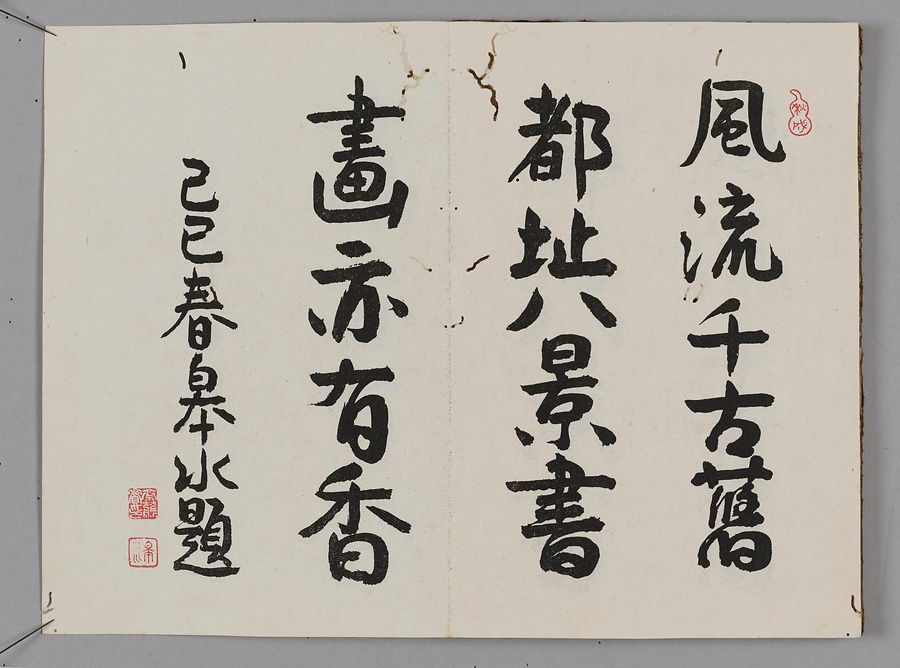 風流千古舊
都址八景書
畫亦有香
己巳春皐水題